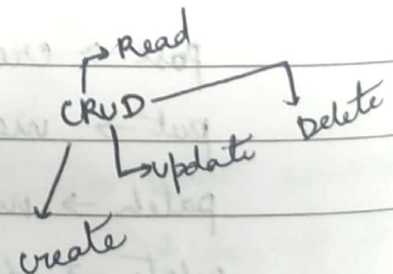 Read
CRUD
Delete
update
create